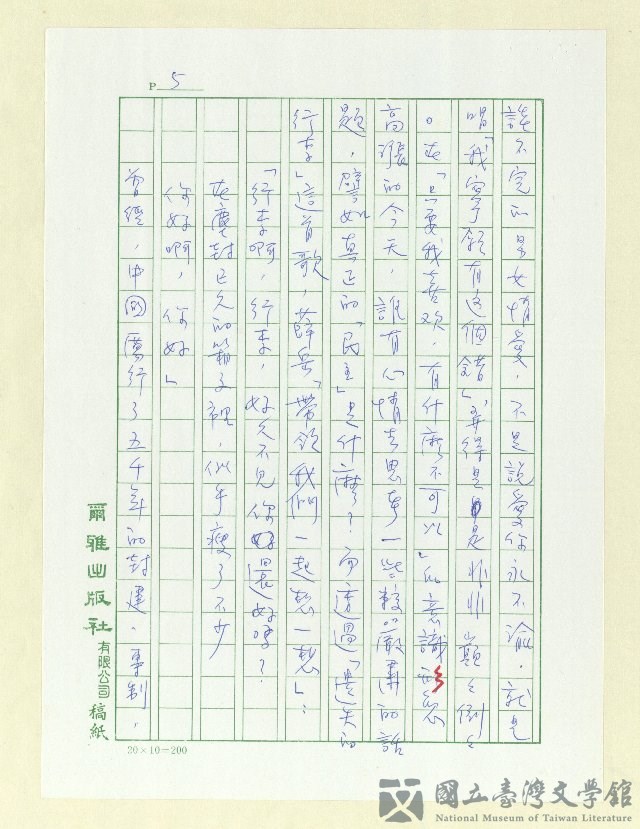 P 5
談不完的男女情愛，不是說愛你永不渝，就是
唱「我寧願有這個錯」，弄得是是非非顛顛倒倒
。在「只要我喜歡，有什麼不可以」的意識形態
高漲的今天，誰有心情去思考一些較嚴肅的話
題，譬如真正的「民主」是什麼？而透過「遺失的
行李」這首歌，薛岳「帶領我們一起想一想」：
「行李啊，行李，好久不見你過得好嗎？
在塵封已久的箱子裡，似乎瘦了不少
你好啊，你好」
曾經，中國厲行了五千年的封建、專制，
爾雅出版社有限公司 稿紙
20×10=200
國立臺灣文學館
National Museum of Taiwan Literature